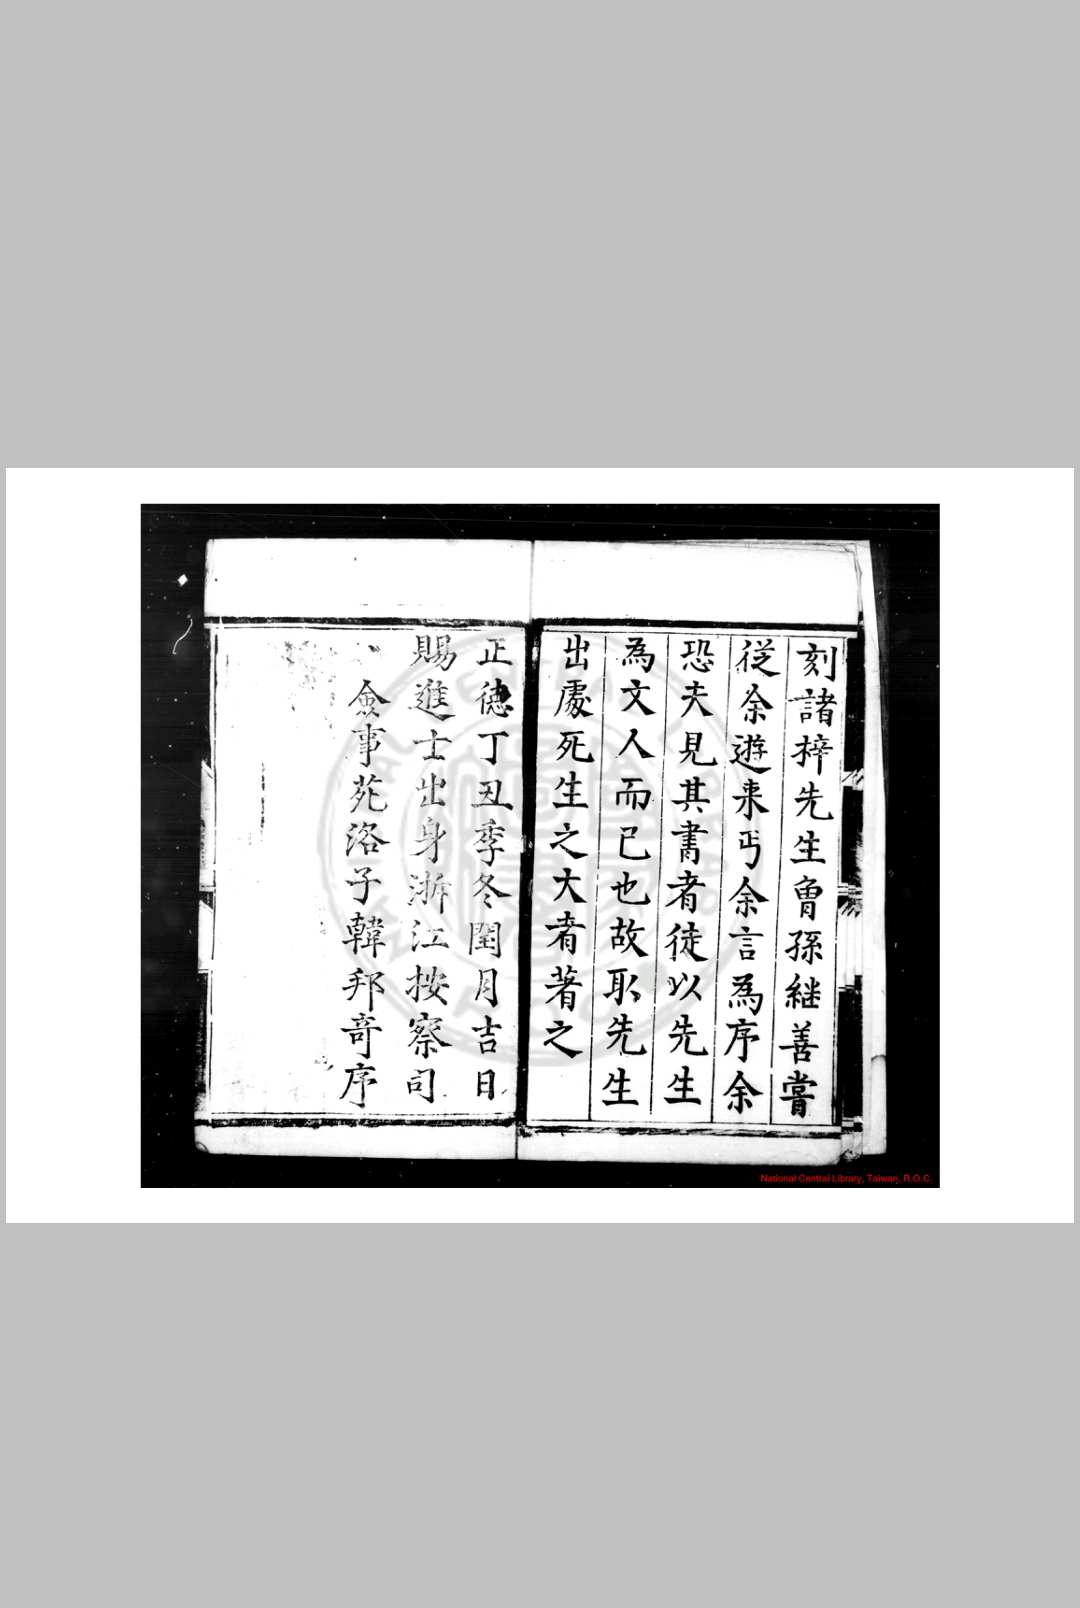 刻諸梓先生曾孫継善嘗
従余遊来丐余言為序余
恐夫見其書者徒以先生
為文人而已也故取先生
出處死生之大者著之
正徳丁丑季冬閏月吉日
賜進士出身浙江按察司
僉事苑洛子韓邦奇序
National Central Library, Taiwan, R.O.C.